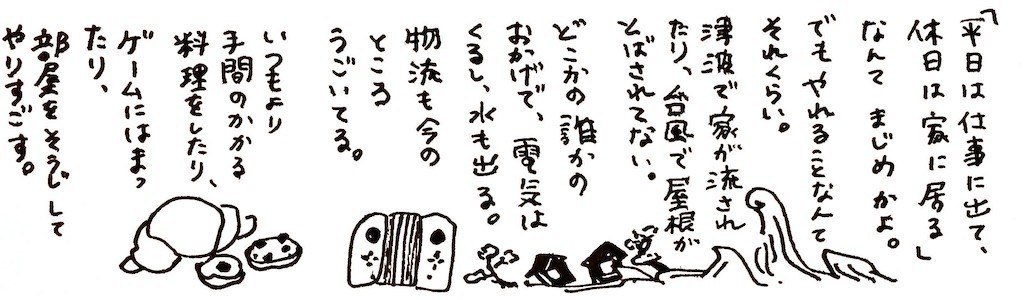 「平日は仕事に出て、
休日は家に居る」
なんて まじめかよ。
でもやれることなんて
それくらい。
津波で家が流され
たり、台風で屋根が
とばされてない。
どこかの誰かの
おかげで、電気は
くるし、水も出る。
物流も今の
ところ
うごいてる。
いつもより
手間のかかる
料理をしたり、
ゲームにはまっ
たり、
部屋をそうじして
やりすごす。